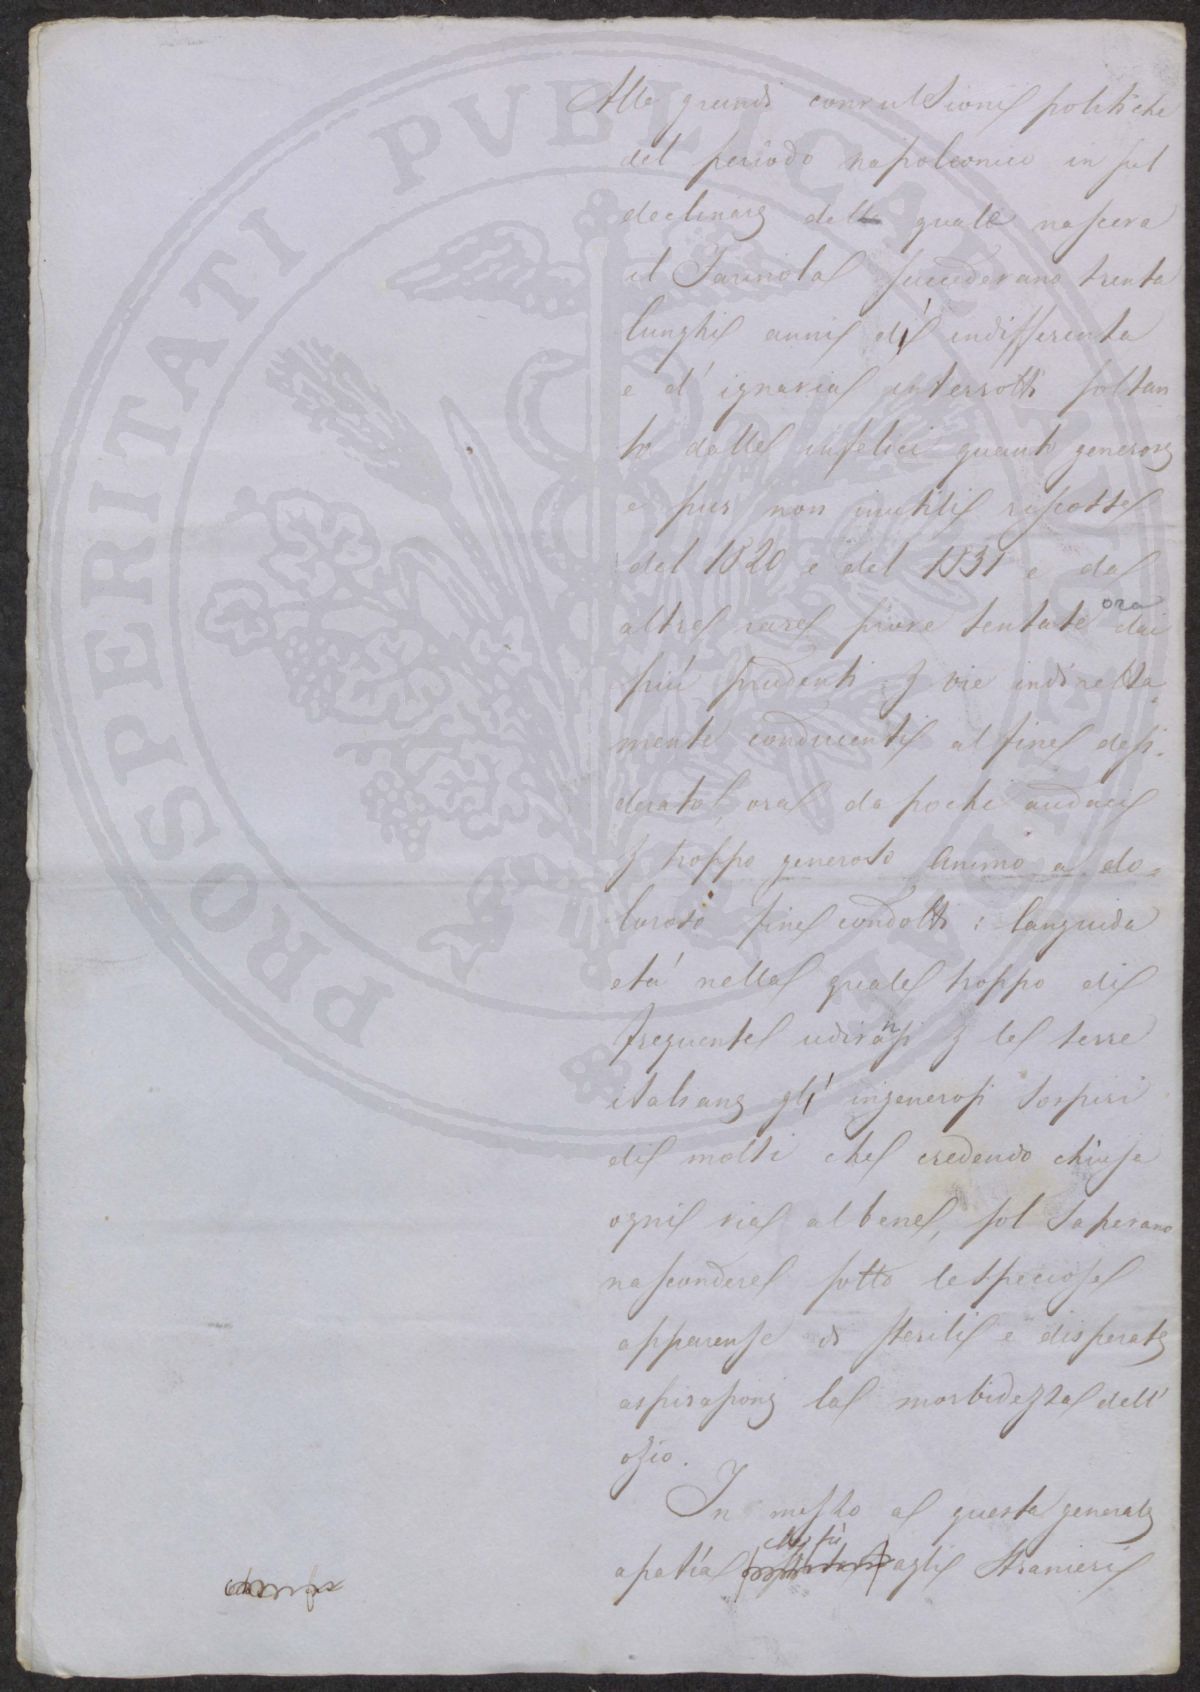 PROSPERITATI PVBLICAE AVGENDAE
Alle grandi convulsioni politiche
del periodo napoleonico in sul
declinare del quale nasceva
il succedevano trenta
lunghi anni di indifferenza
e d' ignavia interrotti soltan
to dalle infelici quanto generose
e pur non inutili riscosse
del 1820 e del 1831 e da
altre rare prove tentate ora dai
più prudenti p vie indiretta
mente conducenti al fine desi-
derato, ora da pochi audaci
p troppo generoso animo a do-
loroso fine condotti: languida
età nella quale troppo di
frequente udivansi p le terre
italiane gl' ingenerosi sospiri
di molti che credendo chiusa
ogni via al bene, sol sapevano
nascondere sotto le speciose
apparenze di sterili e disperate
aspirazioni la morbidezza dell'
ozio.
In mezzo a questa generale
apatia che fù agli stranieri